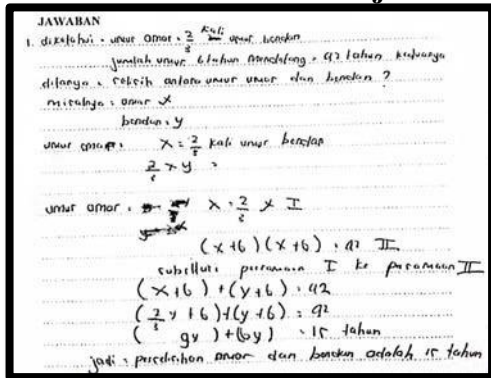 JAWABAN
1. diketahui : umur omar = 2/3 kali umur bendan
jumlah umur 6 tahun mendatang = 92 tahun keduanya
ditanya : selisih antara umur umar dan bendan ?
misalnya : omar x
bendan : y
umur omar : x = 2/3 kali umur bendan
2/3 x y =
umur omar : x = 2/3 y I
(x+6) (x+6) = 92 II
subsitusi persamaan I ke persamaan II
(x+6) + (y+6) = 92
(2/3 y + 6) + (y+6) = 92
( gy ) + (6y) = 15 tahun
jadi : perselisihan omar dan bendan adalah 15 tahun